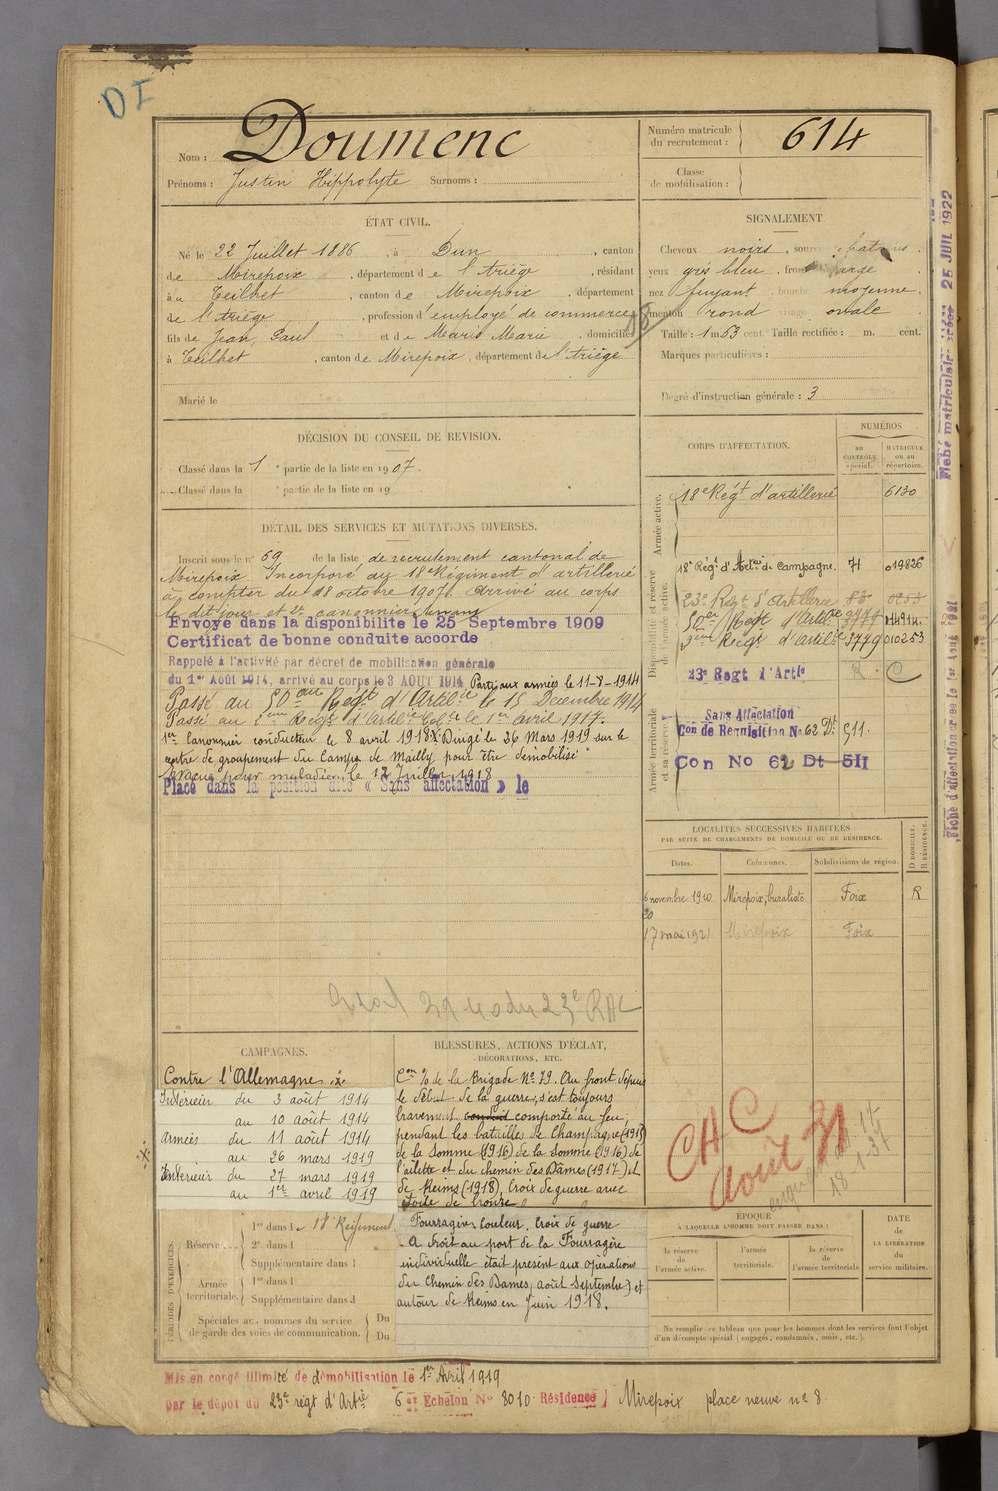 DI
Nom : Doumenc
Prénoms : Justin Hippolyte Surnoms :
Numéro matricule du recrutement : 614
Classe de mobilisation :
ÉTAT CIVIL.
Né le 22 Juillet 1886, à Dun, canton
de Mirepoix, département de l'Ariège, résidant
à Teilhet, canton de Mirepoix, département
de l'Ariège, profession d'employé de commerce
fils de Jean Paul et de Maris Marie, domiciliés
à Teilhet, canton de Mirepoix, département de l'Ariège
Marié le
SIGNALEMENT
Cheveux noirs, sourcils
yeux gris bleu, front large
nez fuyant, bouche moyenne
menton rond visage ovale
Taille : 1 m. 63 cent. Taille rectifiée : m. cent.
Marques particulières :
Degré d'instruction générale : 3
DÉCISION DU CONSEIL DE REVISION.
Classé dans la 1e partie de la liste en 1907.
Classé dans la e partie de la liste en 19
DÉTAIL DES SERVICES ET MUTATIONS DIVERSES.
Inscrit sous le n° 69 de la liste de recrutement cantonal de
Mirepoix. Incorporé au 18e Régiment d'artillerie
à compter du 8 octobre 1907. arrivé au corps
le dit jour et 2e canonnier servant
Envoyé dans la disponibilité le 25 Septembre 1909
Certificat de bonne conduite accordé
Rappelé à l'activité par décret de mobilisation générale
du 1er Août 1914, arrivé au corps le 3 AOUT 1914 Parti aux armées le 11-8-1914
Passé au 50ème Régt d'Artie le 15 Décembre 1914
Passé au 2ème Régt d'Artie Colle le 1er avril 1917.
1er Canonnier conducteur le 8 avril 1918. Dirigé le 26 Mars 1919 sur le
centre de groupement du Camp de Mailly pour être démobilisé
Evacué pour maladie le 12 Juillet 1918
Placé dans la position dite « Sans affectation » le
CORPS D'AFFECTATION.
NUMÉROS
au CONTRÔLE spécial.
MATRICULE ou au répertoire.
Armée active.
18e Régt d'artillerie 6130
Disponibilité et réserve de l'armée active.
18e Régt d'Artie de Campagne. 74 019826
23e Regt d'Artillerie
50ème Régt d'Artie
3ème Regt d'artie 3779 010253
23e Regt d'Artie R. C
Armée territoriale et sa réserve.
Sans Affectation
Con de Requisition No 62 Dt 511.
Con No 62 Dt 511
LOCALITÉS SUCCESSIVES HABITÉES
PAR SUITE DE CHANGEMENTS DE DOMICILE OU DE RÉSIDENCE.
Dates. Communes. Subdivisions de région. D DOMICILE. R RÉSIDENCE.
6 novembre 1910 Mirepoix, buraliste Foix R
17 mai 1921 Mirepoix Foix
23e RAC
CAMPAGNES.
Contre l'Allemagne
Intérieur du 3 août 1914
au 10 août 1914
Armées du 11 août 1914
au 26 mars 1919
Intérieur du 27 mars 1919
au 1er avril 1919
BLESSURES, ACTIONS D'ÉCLAT,
DÉCORATIONS, ETC.
Con % de la Brigade N° 79. Au front depuis
le début de la guerre, s'est toujours
bravement conduit comporté au feu,
pendant les batailles de Champagne (1915)
de la Somme (1916) de la Somme (1916) de
l'ailette et du chemin des Dames (1917) et
de Reims (1918). Croix de guerre avec
étoile de bronze
Fourragère Couleur Croix de guerre
A droit au port de la Fourragère
individuelle était présent aux opérations
du Chemin des Dames, août Septembre) et
autour de Reims en Juin 1918.
CAC
août 31
PÉRIODES D'EXERCICES.
Réserve
1re dans le 18e Régiment
2e dans l
Supplémentaire dans l
Armée territoriale.
1re dans l
Supplémentaire dans l
Spéciales aux hommes du service de garde des voies de communication. Du
Du
ÉPOQUE
À LAQUELLE L'HOMME DOIT PASSER DANS :
la réserve de l'armée active.
l'armée territoriale.
la réserve de l'armée territoriale
DATE DE LA LIBÉRATION du service militaire.
Ne remplir ce tableau que pour les hommes dont les services font l'objet
d'un décompte spécial (engagés, condamnés, omis, etc.).
Mis en congé illimité de démobilisation le 1er Avril 1919
par le dépôt du 23e régt d'Artie 6e Echelon N° 8010 Résidence Mirepoix place neuve n° 8
Fiche matriculaire 25 JUIL 1922
Fiche d'affectation